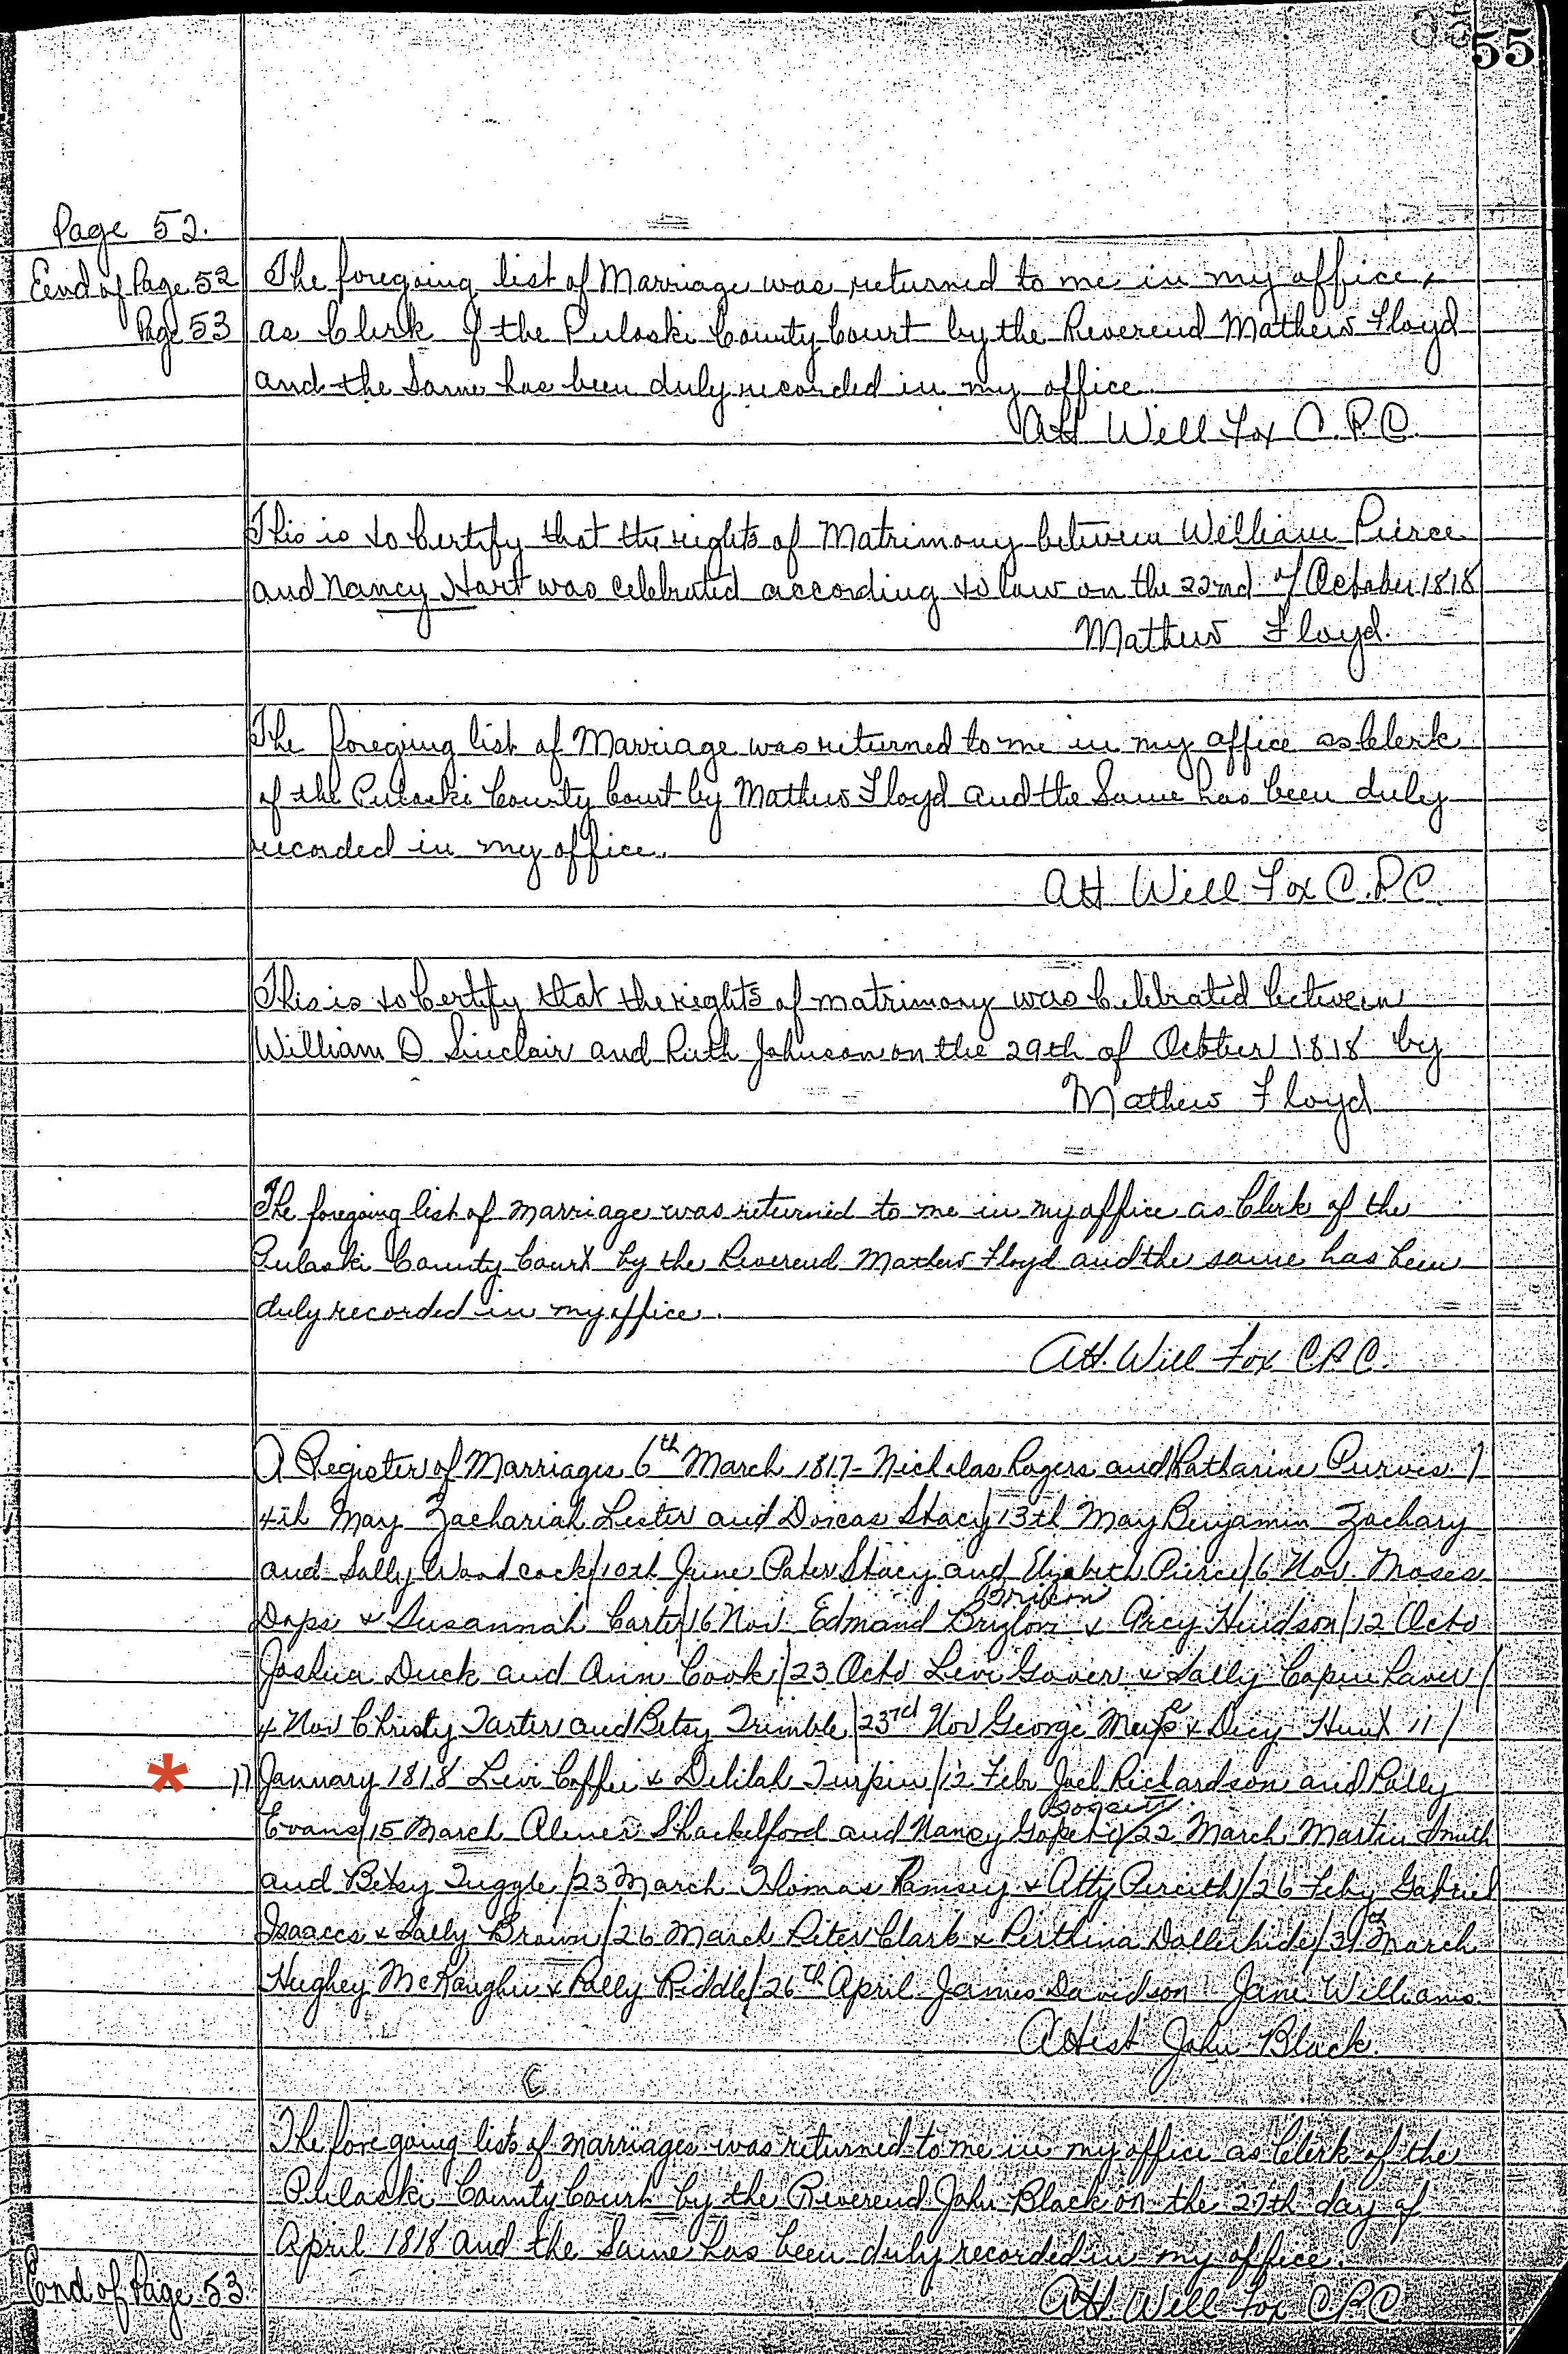 55
Page 52.
End of Page 52 The foregoing list of Marriage was returned to me in my office,
Page 53 as Clerk of the Pulaski County Court by the Reverend Mathew Floyd
and the Same has been duly recorded in my office.
Att Will Fox C.P.C.
This is to Certify that the rights of Matrimony between William Pierce
and Nancy Hart was celebrated according to law on the 22nd of October 1818
Mathew Floyd.
The foregoing list of Marriage was returned to me in my office as Clerk
of the Pulaski County Court by Mathew Floyd and the Same has been duly
recorded in my office.
Att Will Fox C.P.C.
This is to Certify that the rights of matrimony was Celebrated between
William D. Sinclair and Ruth Johnson on the 29th of October 1818 by
Mathew Floyd
The foregoing list of marriage was returned to me in my office as Clerk of the
Pulaski County Court by the Reverend Mathew Floyd and the same has been
duly recorded in my office.
Att. Will Fox C.P.C.
A Register of Marriages 6th March 1817 - Nicholas Rogers and Katharine Purvis /
4th May Zachariah Lester and Dorcas Stacy / 13th May Benjamin Zachary
and Sally Woodcock / 10th June Peter Stacy and Elizabeth Pierce / 6 Nov. Moses
& Susannah Carter / 16 Nov. Edmond & Arcy Hudson / 12 Octo
Joshua Duck and Ann Cook / 23 Octo Levi Gover & Sally /
4 Nov Christy Tarter and Betsy Trimble / 23rd Nov George & Dicy Hunt 11 /
* 17 January 1818 Levi Coffee & Delilah Turpin / 12 Feb. Joel Richardson and Polly
Evans / 15 March Shackelford and Nancy / 22 March Martin Smith
and Betsy Tuggle / 23 March Thomas Ramsey & / 26 Feby Gabriel
Isaacs & Sally Brown / 26 March Peter Clark & Dollerhide / 31st March
Hughey & Polly Riddle / 26th April James Davidson Jane Williams.
Attest John Black.
The foregoing lists of marriages was returned to me in my office as Clerk of the
Pulaski County Court by the Reverend John Black on the 27th day of
April 1818 and the Same has been duly recorded in my office.
End of Page 53
Att. Will Fox C.P.C